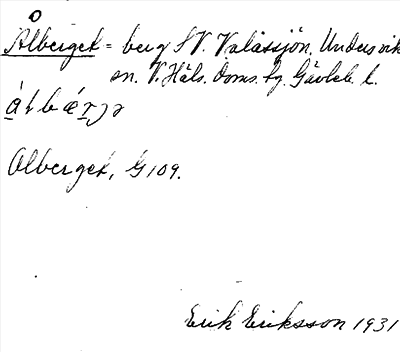 Ålberget = berg SV. Valåssjön, Undersvik
sn. V. Häls. Doms. Hg. Gävleb. l.
Olberget, G 109.
Erik Eriksson 1931